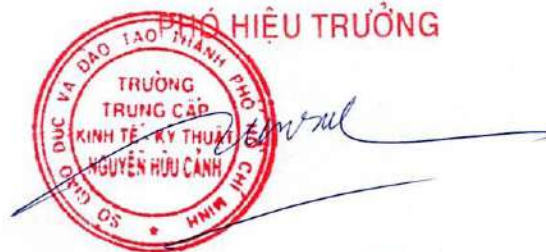 PHÓ HIỆU TRƯỞNG
SỞ GIÁO DỤC VÀ ĐÀO TẠO THÀNH PHỐ HỒ CHÍ MINH
TRƯỜNG
TRUNG CẤP
KINH TẾ - KỸ THUẬT
NGUYỄN HỮU CẢNH